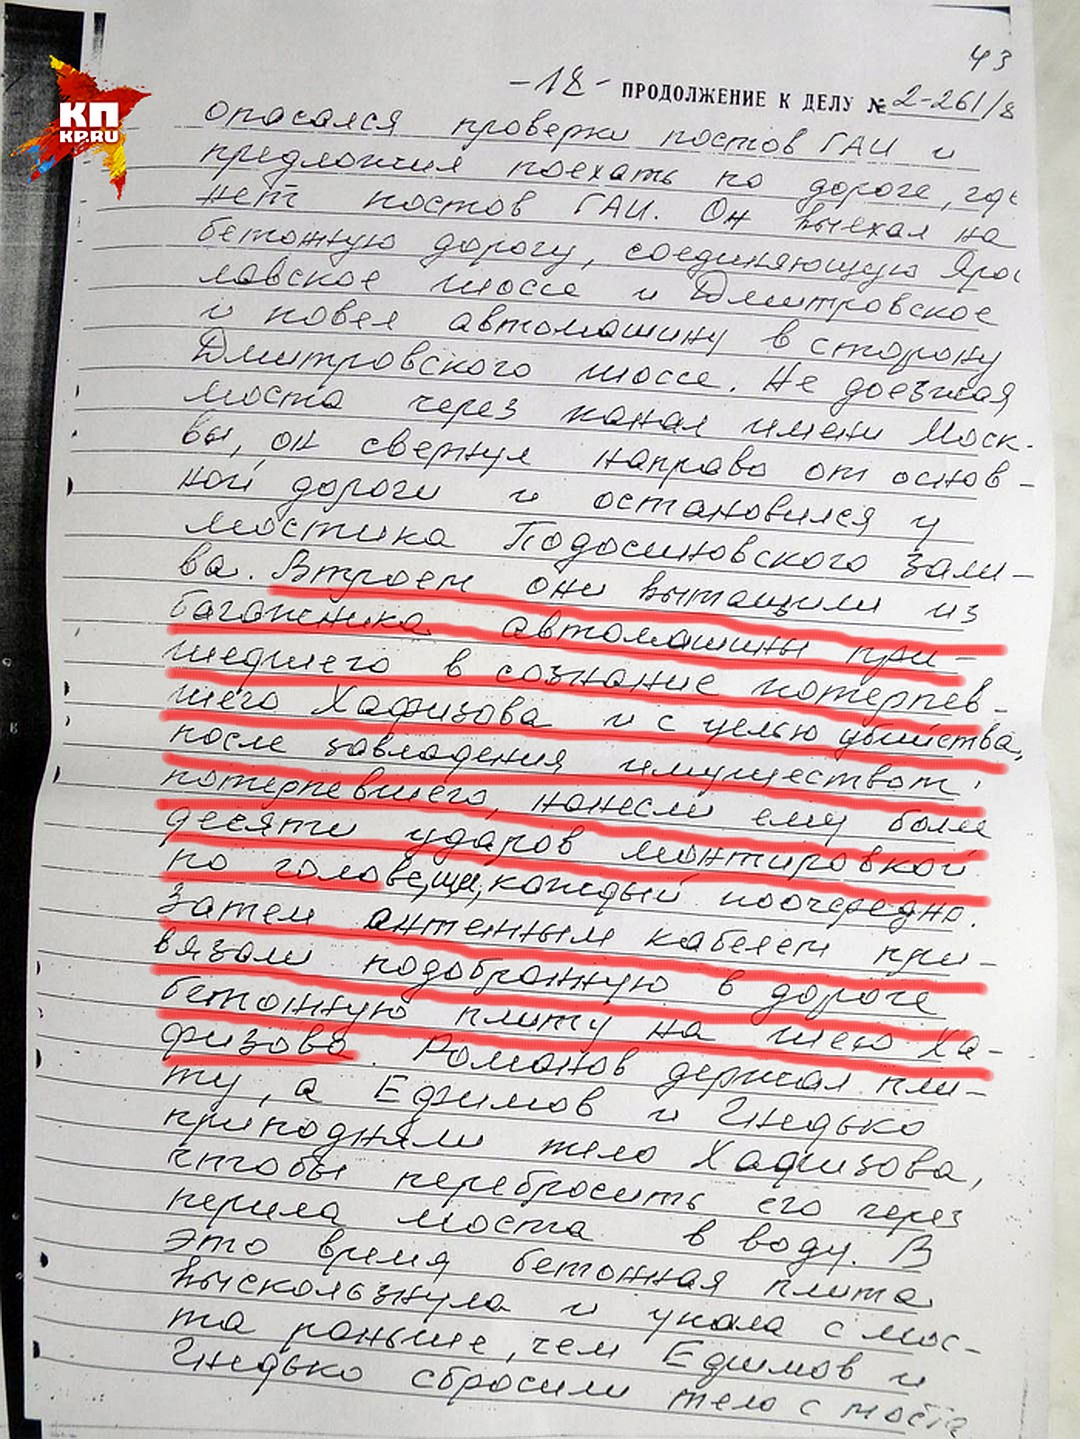 КП
KP.RU
43
-18- ПРОДОЛЖЕНИЕ К ДЕЛУ № 2-261/8
опасался проверки постов ГАИ и
предложил поехать по дороге, где
нет постов ГАИ. Он выехал на
бетонную дорогу, соединяющую Ярос
лавское шоссе и Дмитровское
и повел автомашину в сторону
Дмитровского шоссе. Не доезжая
моста через канал имени Моск-
вы, он свернул направо от основ-
ной дороги и остановился у
мостика Подосиновского зали-
ва. Втроем они вытащили из
багажника автомашины при-
шедшего в сознание потерпев-
шего Хафизова и с целью убийства,
после завладения имуществом
потерпевшего, нанесли ему более
десяти ударов монтировкой
по голове, каждый поочередно.
Затем антенным кабелем при-
вязали подобранную в дороге
бетонную плиту на шею Ха-
физова. Романов держал пли-
ту, а Ефимов и Гнедько
приподняли тело Хафизова,
чтобы перебросить его через
перила моста в воду. В
это время бетонная плита
выскользнула и упала с мос-
та раньше, чем Ефимов и
Гнедько сбросили тело с моста